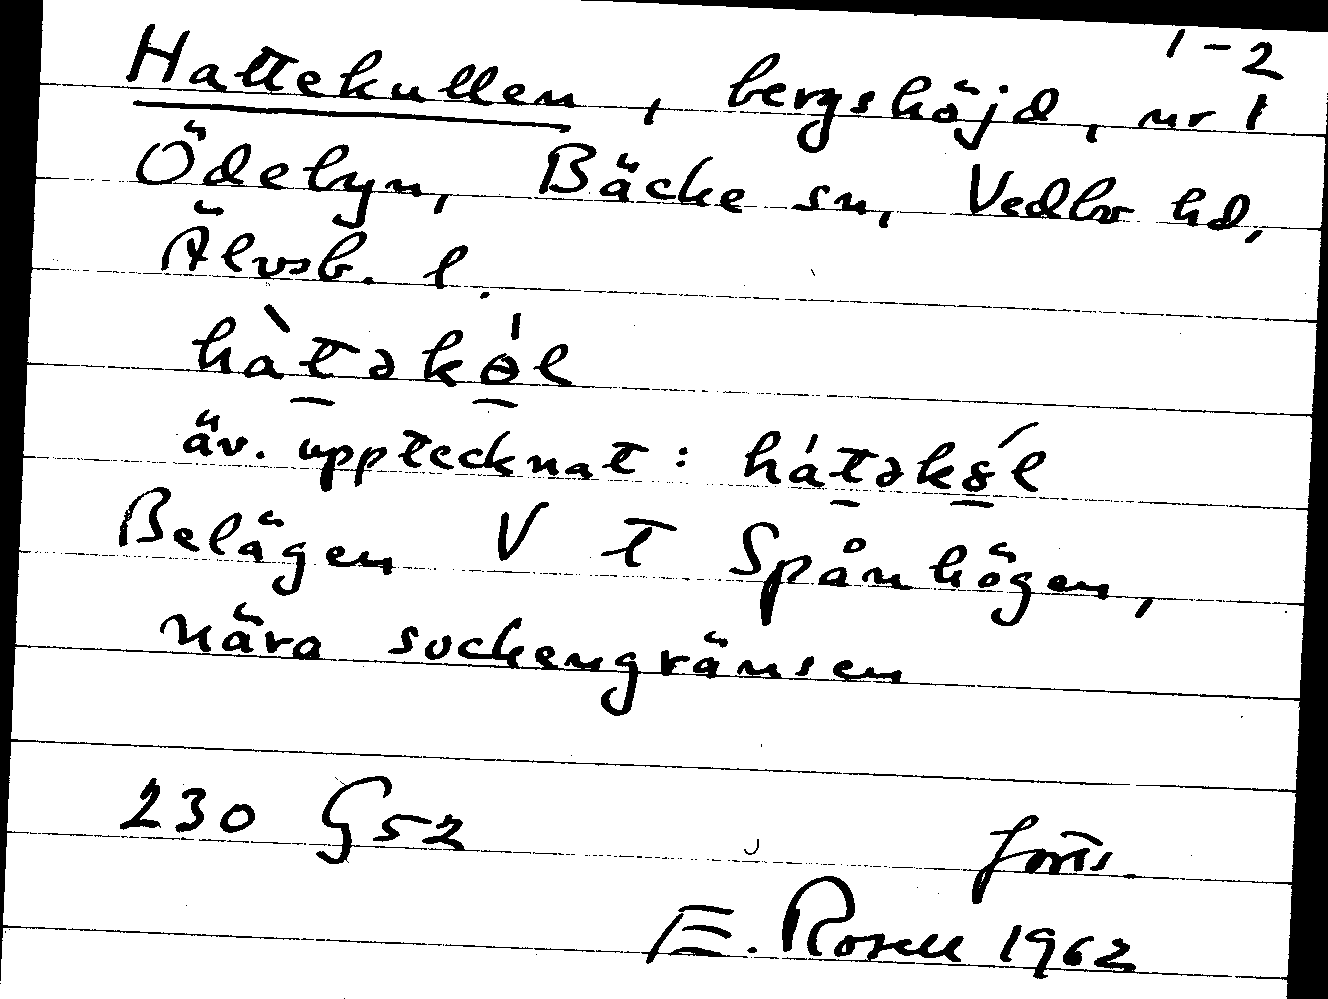 1-2
Hattekullen, bergshöjd, nr 1
Ödebyn, Bäcke sn, Vedbo hd,
Älvsb. l.
hàt̲əkɵ̲́l
äv. upptecknat: hát̲ək8̲́l
Belägen V t Spånhögen,
nära sockengränsen
230 G52
forts.
E. Rosell 1962